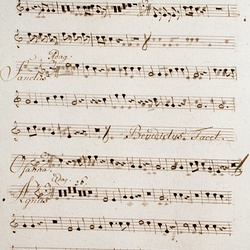 Adag.
Sanctus
Benedictus Tacet.
Osanna
Adag.
Agnus